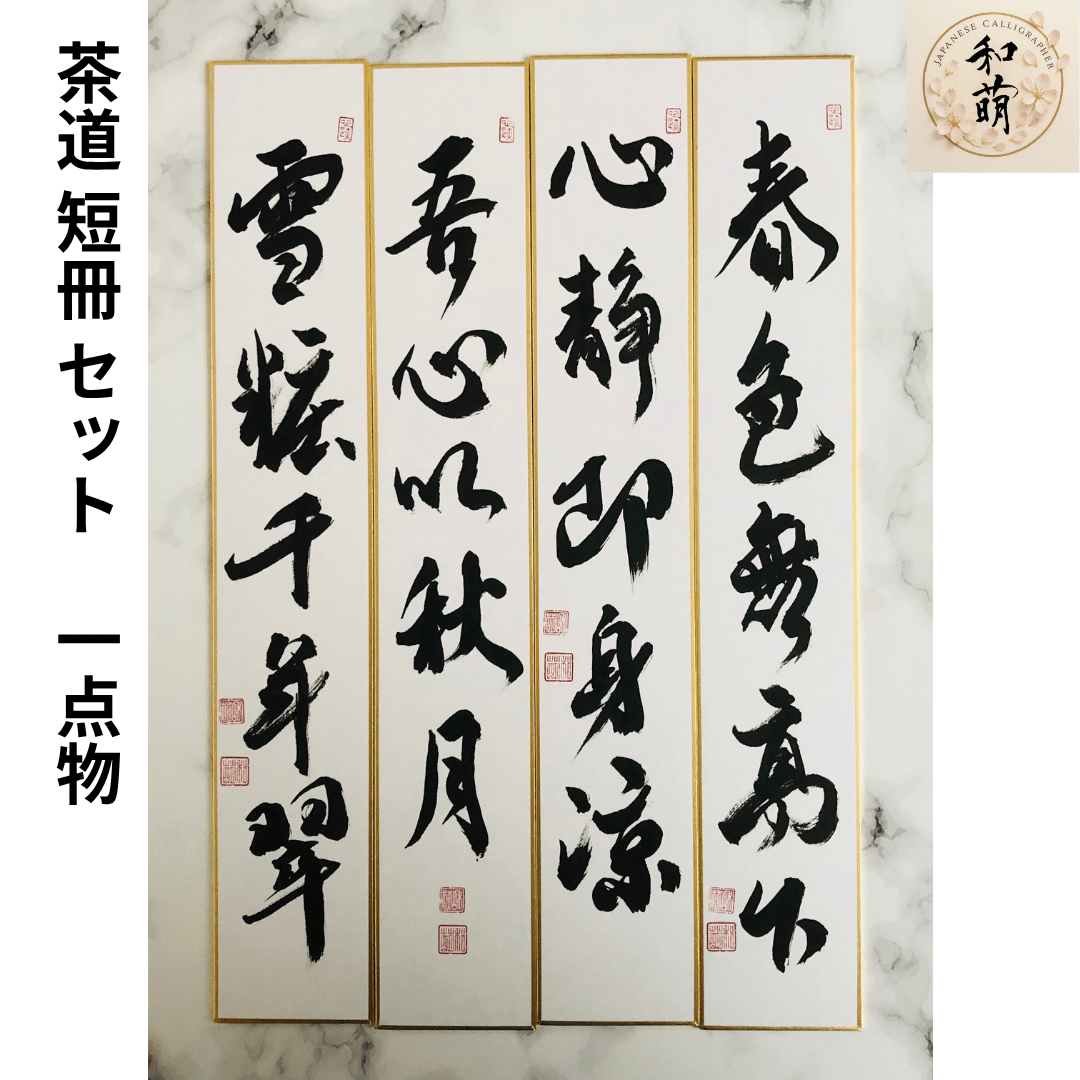 茶道 短冊 セット 一点物
春色無高下
心静即身涼
吾心似秋月
雪粧千年翠
JAPANESE CALLIGRAPHER
和萌